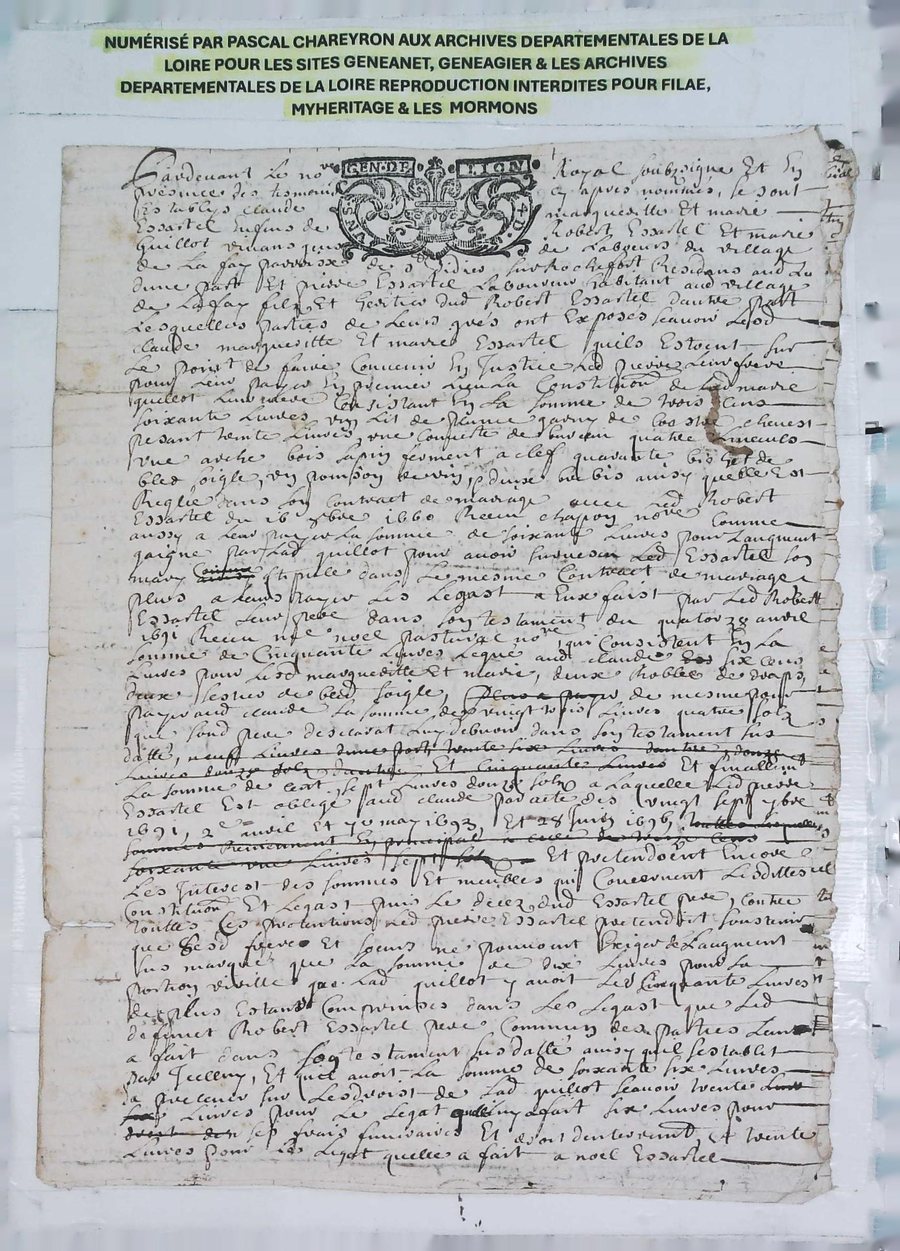 NUMÉRISÉ PAR PASCAL CHAREYRON AUX ARCHIVES DEPARTEMENTALES DE LA
LOIRE POUR LES SITES GENEANET, GENEAGIER & LES ARCHIVES
DEPARTEMENTALES DE LA LOIRE REPRODUCTION INTERDITES POUR FILAE,
MYHERITAGE & LES MORMONS
GEN·DE LION
Pardevant Le nore Royal soubzsigne Et En
presence des tesmoins cy apres nommés, se sont
Establys claude marqueville Et marie
Essartel Enfans de Robert Essartel Et marie
Guillot de Laboeurs du village
de La fay parroisse de
dune part Et pierre Essartel Laboureur habitant aud village
de La fay fils Et heritier dud Robert Essartel dautre part
Lesquelles parties de Leurs grés ont Exposés scavoir Lesd
claude marqueville Et marie Essartel quils Estoent sur
Le point de faire Convenir En Justice Led pierre Leur frere
pour Leur payer En premier Lieu La Constitution de Lad marie
quillot Leur mere Consistant En La somme de trois Cens
soixante Livres, un Lit de plume garny de
pesant trente Livres, une Couverte de quatre Linceuls
une arche bois sapin fermant a clef quarante
bled soigle, un de vin, deux brebis ainsy quelle Est
Reglé dans son Contract de mariage avec Led Robert
Essartel du 16 xbre 1660 Receu chapon nore Comme
aussy a Leur payer La somme de soixante Livres pour Laugment
gaigne par Lad quillot pour avoir survescu Led Essartel son
mary stipulé dans Le mesme Contract de mariage
plus a Leur payer Les Legast a Eux faist par Led Robert
Essartel Leur pere dans son testament du quatorze avril
1691 Receu me noel pastural nore qui Consistent En La
somme de Cinquante Livres Legué aud claude six Cens
Livres pour Lesd marqueville Et marie, deux Robbes de draps,
deux sestier de bled soigle, plus a payer de mesme pour
payer aud claude La somme de vingt trois Livres quatre solz
que sond pere desclarat Luy debvoir dans son testament sus
datté, neuf Livres dune part trente six Livres dautre, douze
Livres douze solz dautre, Et Cinquante Livres Et finallemt
La somme de Cent sept Livres douze solz a Laquelle Led pierre
Essartel Est obligé aud claude par acte des vingt sept 7bre
1691, 2e avril Et may 1693, Et 28 Juin 1696
sommes Revenant En principal a celle de trois Cens
soixante une Livres sept solz Et pretendoent Encore
Les Interest des sommes Et meubles qui Concernent Lesdittes
Constitution Et Legast puis Le deces dud Essartel pere, Contre
toutes Ces pretentions Led pierre Essartel pretendoit soustenir
que Lesd frere Et soeurs ne pouvoient Exiger de Laugment
sus marqué que La somme de dix Livres pour La
portion virille que Lad quillot y avoit Les Cinquante Livres
de plus Estant Comprinses dans Les Legast que Led
deffunct Robert Essartel pere, Commun des parties Leur
a fait dans son testament sus datté ainsy quil sestablit
par Icelluy, Et quil avoit La somme de soixante six Livres
a prelever sur Lesd droist de Lad quillot scavoir trente
Livres pour Le Legat quelle luy a fait six Livres pour
ses frais funeraires Et droit denterrement, Et trente
Livres pour Le Legat quelle a fait a noel Essartel